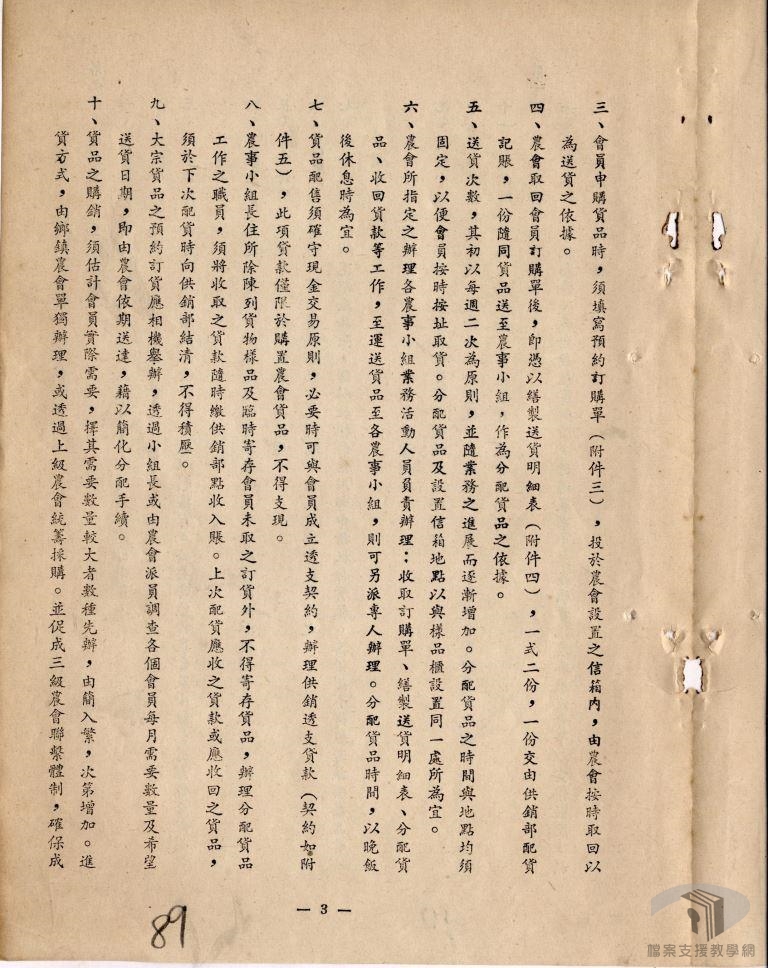 三、會員申購貨品時，須填寫預約訂購單（附件三），投於農會設置之信箱內，由農會按時取回以
為送貨之依據。
四、農會取回會員訂購單後，即憑以繕製送貨明細表（附件四），一式二份，一份交由供銷部配貨
記賬，一份隨同貨品送至農事小組，作為分配貨品之依據。
五、送貨次數，其初以每週二次為原則，並隨業務之進展而逐漸增加。分配貨品之時間與地點均須
固定，以便會員按時按址取貨。分配貨品及設置信箱地點以與樣品櫃設置同一處所為宜。
六、農會所指定之辦理各農事小組業務活動人員負責辦理；收取訂購單、繕製送貨明細表、分配貨
品、收回貨款等工作，至運送貨品至各農事小組，則可另派專人辦理。分配貨品時間，以晚飯
後休息時為宜。
七、貨品配售須確守現金交易原則，必要時可與會員成立透支契約，辦理供銷透支貸款（契約如附
件五），此項貸款僅限於購置農會貨品，不得支現。
八、農事小組長住所除陳列貨物樣品及臨時寄存會員未取之訂貨外，不得寄存貨品，辦理分配貨品
工作之職員，須將收取之貨款隨時繳供銷部點收入賬。上次配貨應收之貨款或應收回之貨品，
須於下次配貨時向供銷部結清，不得積壓。
九、大宗貨品之預約訂貨應相機舉辦，透過小組長或由農會派員調查各個會員每月需要數量及希望
送貨日期，即由農會依期送達，藉以簡化分配手續。
十、貨品之購銷，須估計會員實際需要，擇其需要數量較大者數種先辦，由簡入繁，次第增加。進
貨方式，由鄉鎮農會單獨辦理，或透過上級農會統籌採購。並促成三級農會聯繫體制，確保成
— 3 —
89
檔案支援教學網